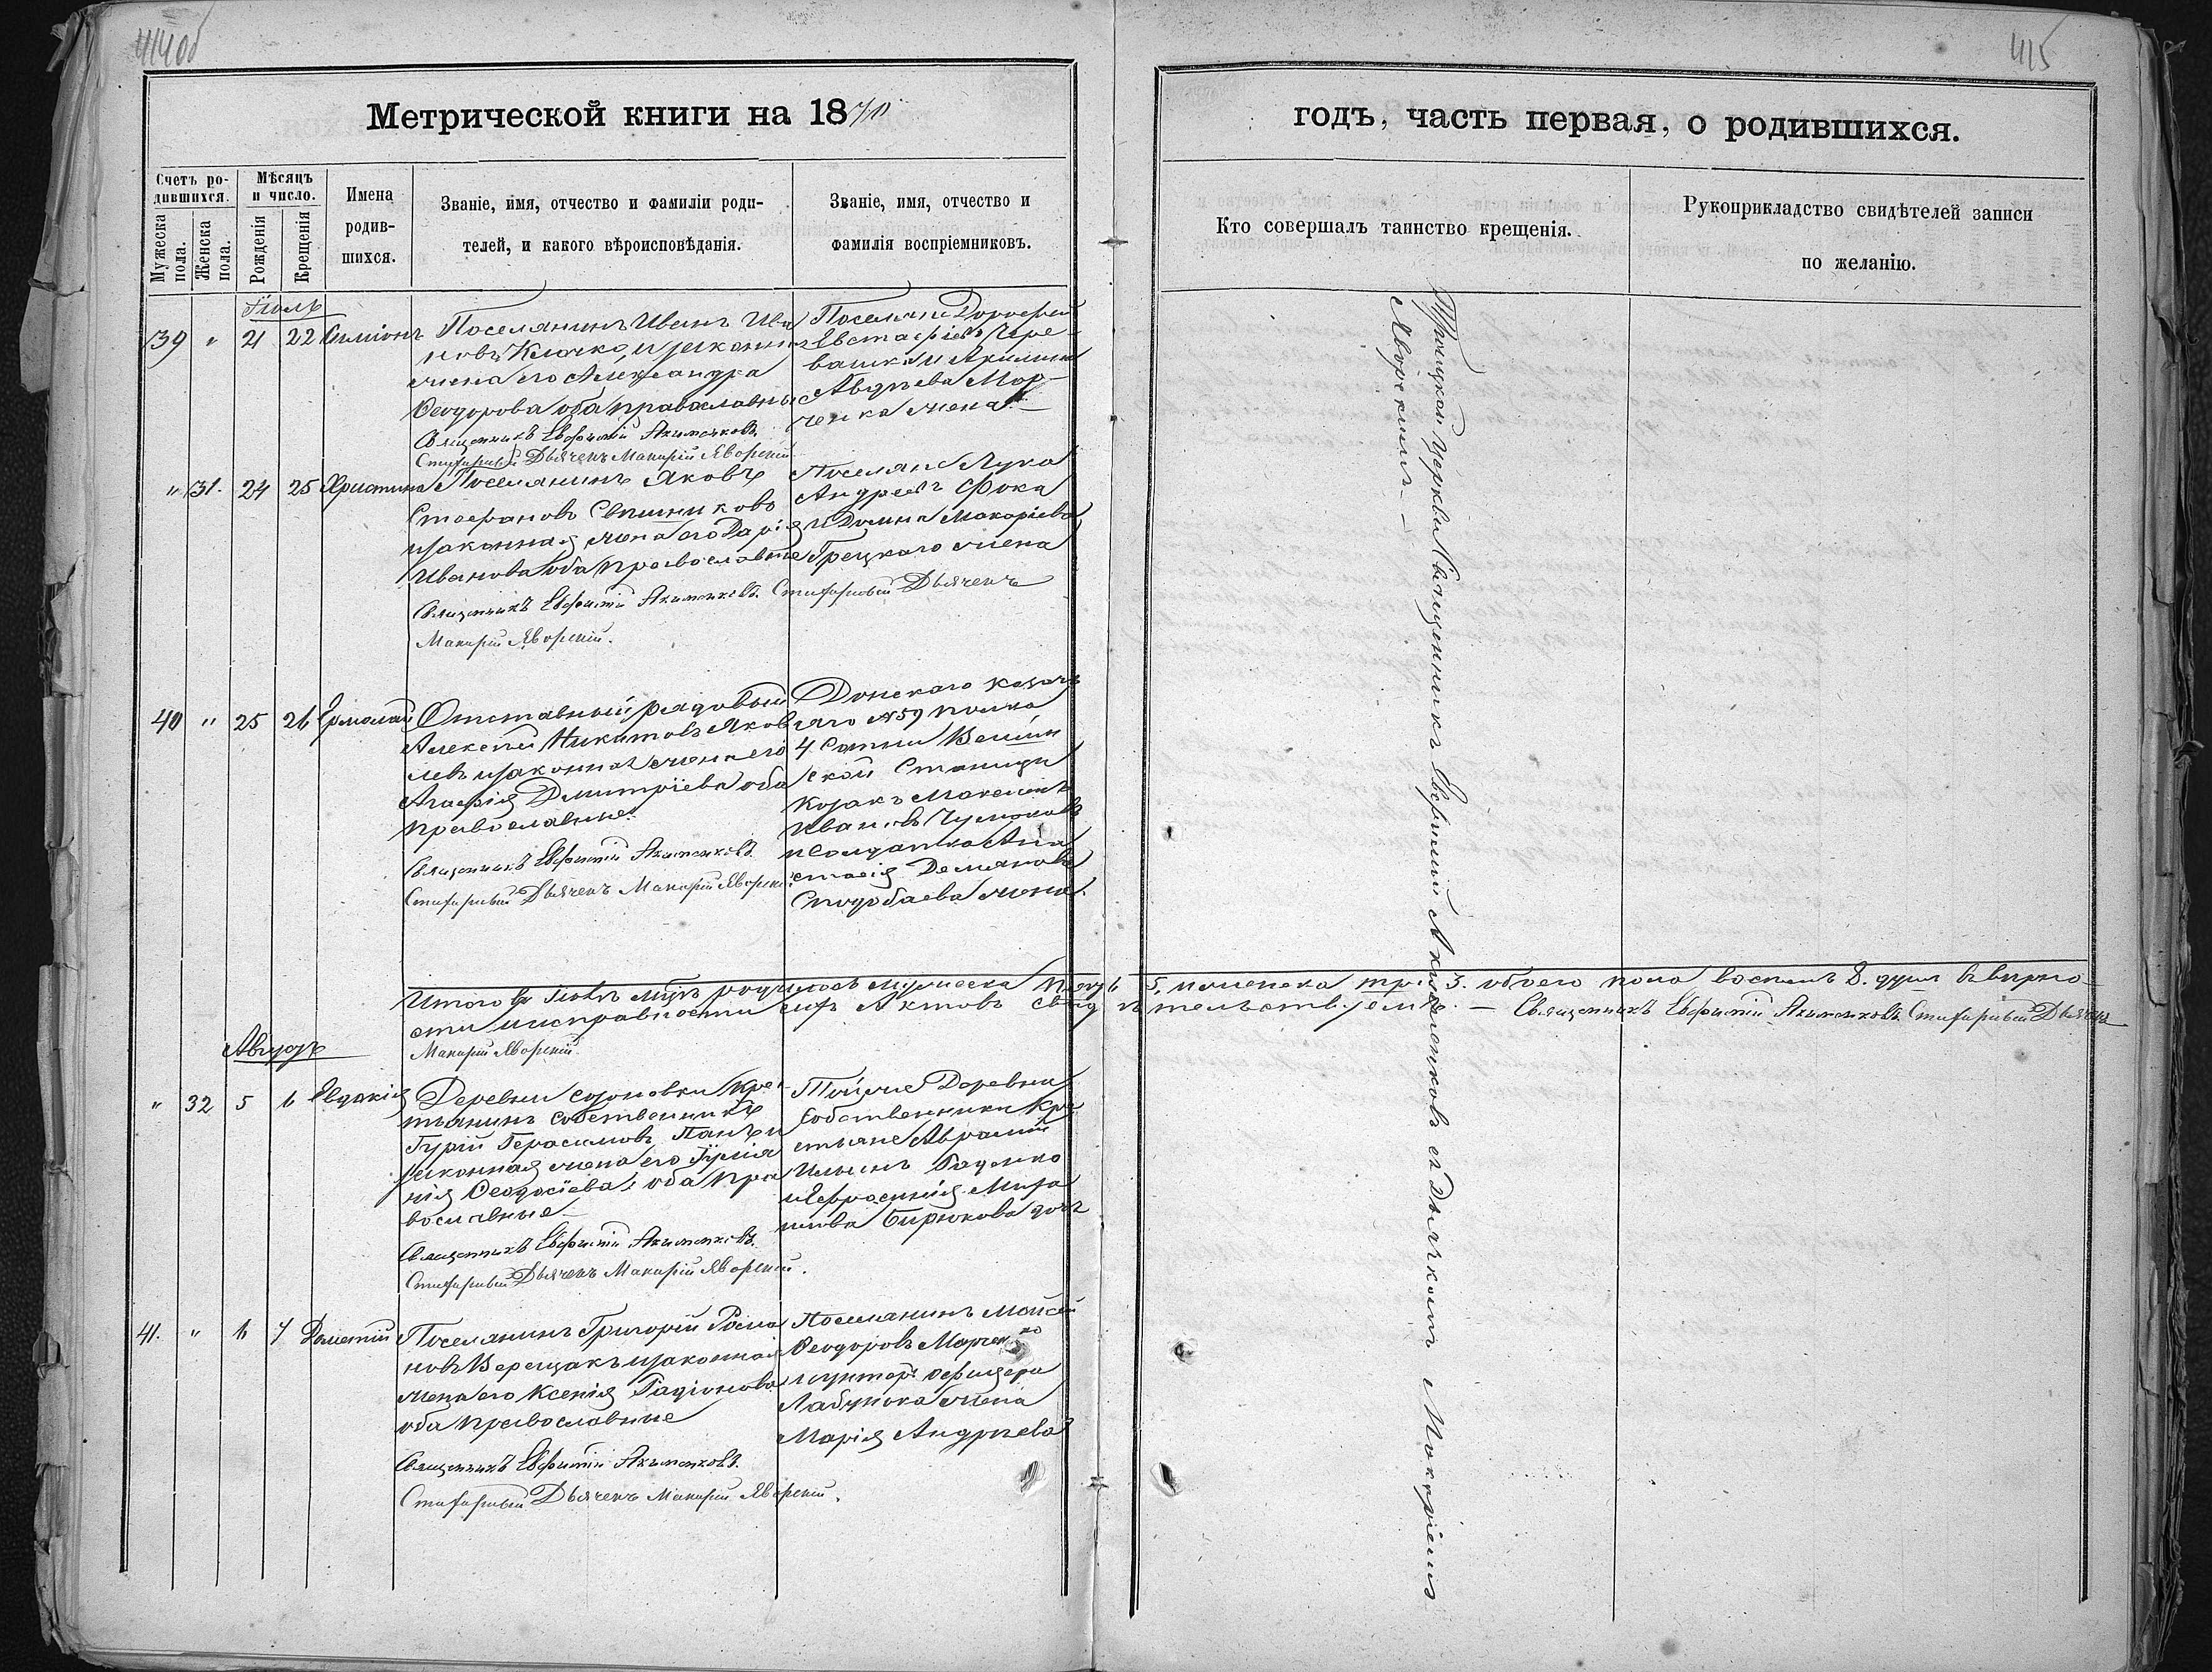 414об
415
Метрической книги на 1870
годъ, часть первая, о родившихся.
Счетъ ро-
дившихся.
Мужеска пола.
Женска пола.
Мѣсяцъ
и число.
Рожденія
Крещенія
Имена
родив-
шихся.
Званіе, имя, отчество и фамиліи роди-
телей, и какого вѣроисповѣданія.
Званіе, имя, отчество и
фамилія воспріемниковъ.
Кто совершалъ таинство крещенія.
Рукоприкладство свидѣтелей записи
по желанію.
Іюль
39 " 21 22 Симіонъ
Поселянинъ Иванъ Ива
новъ Клочко, и законная
жена его Александра
Феодорова оба православны
Священникъ Евфимій Акименковъ.
Стихарный Дьячекъ Макарій Яворскій
Поселяне Дорофей
Евстафіевъ Чере-
вашко и Акилина
Авдѣева Мар-
ченка жена. —
" 31. 24 25 Христина
Поселянинъ Яковъ
Стефановъ
и законная жена его Дарія
Иванова оба православные
Священникъ Евфимій Акименковъ. Стихарный Дьячекъ
Макарій Яворскій.
Поселяне Лука
Андреевъ Фока
и Домна Макаріева
Грецкаго жена
40 " 25 26 Ермолай
Отставный рядовый
Алексѣй Никитовъ Яков
левъ и законная жена его
Агафія Димитріева оба
православные.
Священникъ Евфимій Акименковъ.
Стихарный Дьячекъ Макарій Яворскій
Донскаго казачь
яго №59 полка
4 Сотни Вешин
ской Станицы
козакъ Максимъ
Ивановъ
и Солдатка Ана
стасія Демянова
Сподобаева жена.
Итого въ Іюлѣ м-цѣ родилось мужеска пять 5, женска три 3. обоего пола восемь 8. душъ въ вѣрно-
сти и исправности сихъ Актовъ свидѣтельствуемъ. — Священникъ Евфимій Акименковъ. Стихарный Дьячекъ
Макарій Яворскій.
Августъ
" 32 5 6 Евдокія
Деревни Созоновки Кре-
стьянинъ собственникъ
Гурій Герасимовъ
законная жена его
нія Феодосіева, оба пра
вославные —
Священникъ Евфимій Акименковъ.
Стихарный Дьячекъ Макарій Яворскій.
Той же Деревни
Собственники Кре
стьяне Аврамій
Ильинъ
и Ефросинія
Бирюкова дочь
41. " 6 7 Дометій
Поселянинъ Григорій Рома
новъ Верещакъ и законная
жена его Ксенія Радіонова
оба православные
Священникъ Евфимій Акименковъ.
Стихарный Дьячекъ Макарій Яворскій.
Поселянинъ Моисей
Феодоровъ Марченко
и унтеръ офицера
жена
Марія Андрѣева
Троицкой Церкви Священникъ Евфимій Акименковъ съ Дьячкомъ Макаріемъ
Яворскимъ —